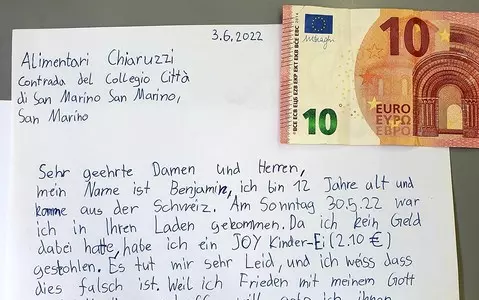 3.6.2022
Alimentari Chiaruzzi
Contrada del Collegio Città
di San Marino San Marino,
San Marino
Sehr geehrte Damen und Herren,
mein Name ist Benjamin, ich bin 12 Jahre alt und
komme aus der Schweiz. Am Sonntag 30.5.22 war
ich in Ihren Laden gekommen. Da ich kein Geld
dabei hatte, habe ich ein JOY Kinder-Ei (2.10 €)
gestohlen. Es tut mir sehr Leid, und ich weiss dass
dies falsch ist. Weil ich Frieden mit meinem Gott
will ich ihnen
10
10
EURO
ΕΥΡΩ
ЕВРО
BCE ECB EZB EKP EKT EKB BCE EBC